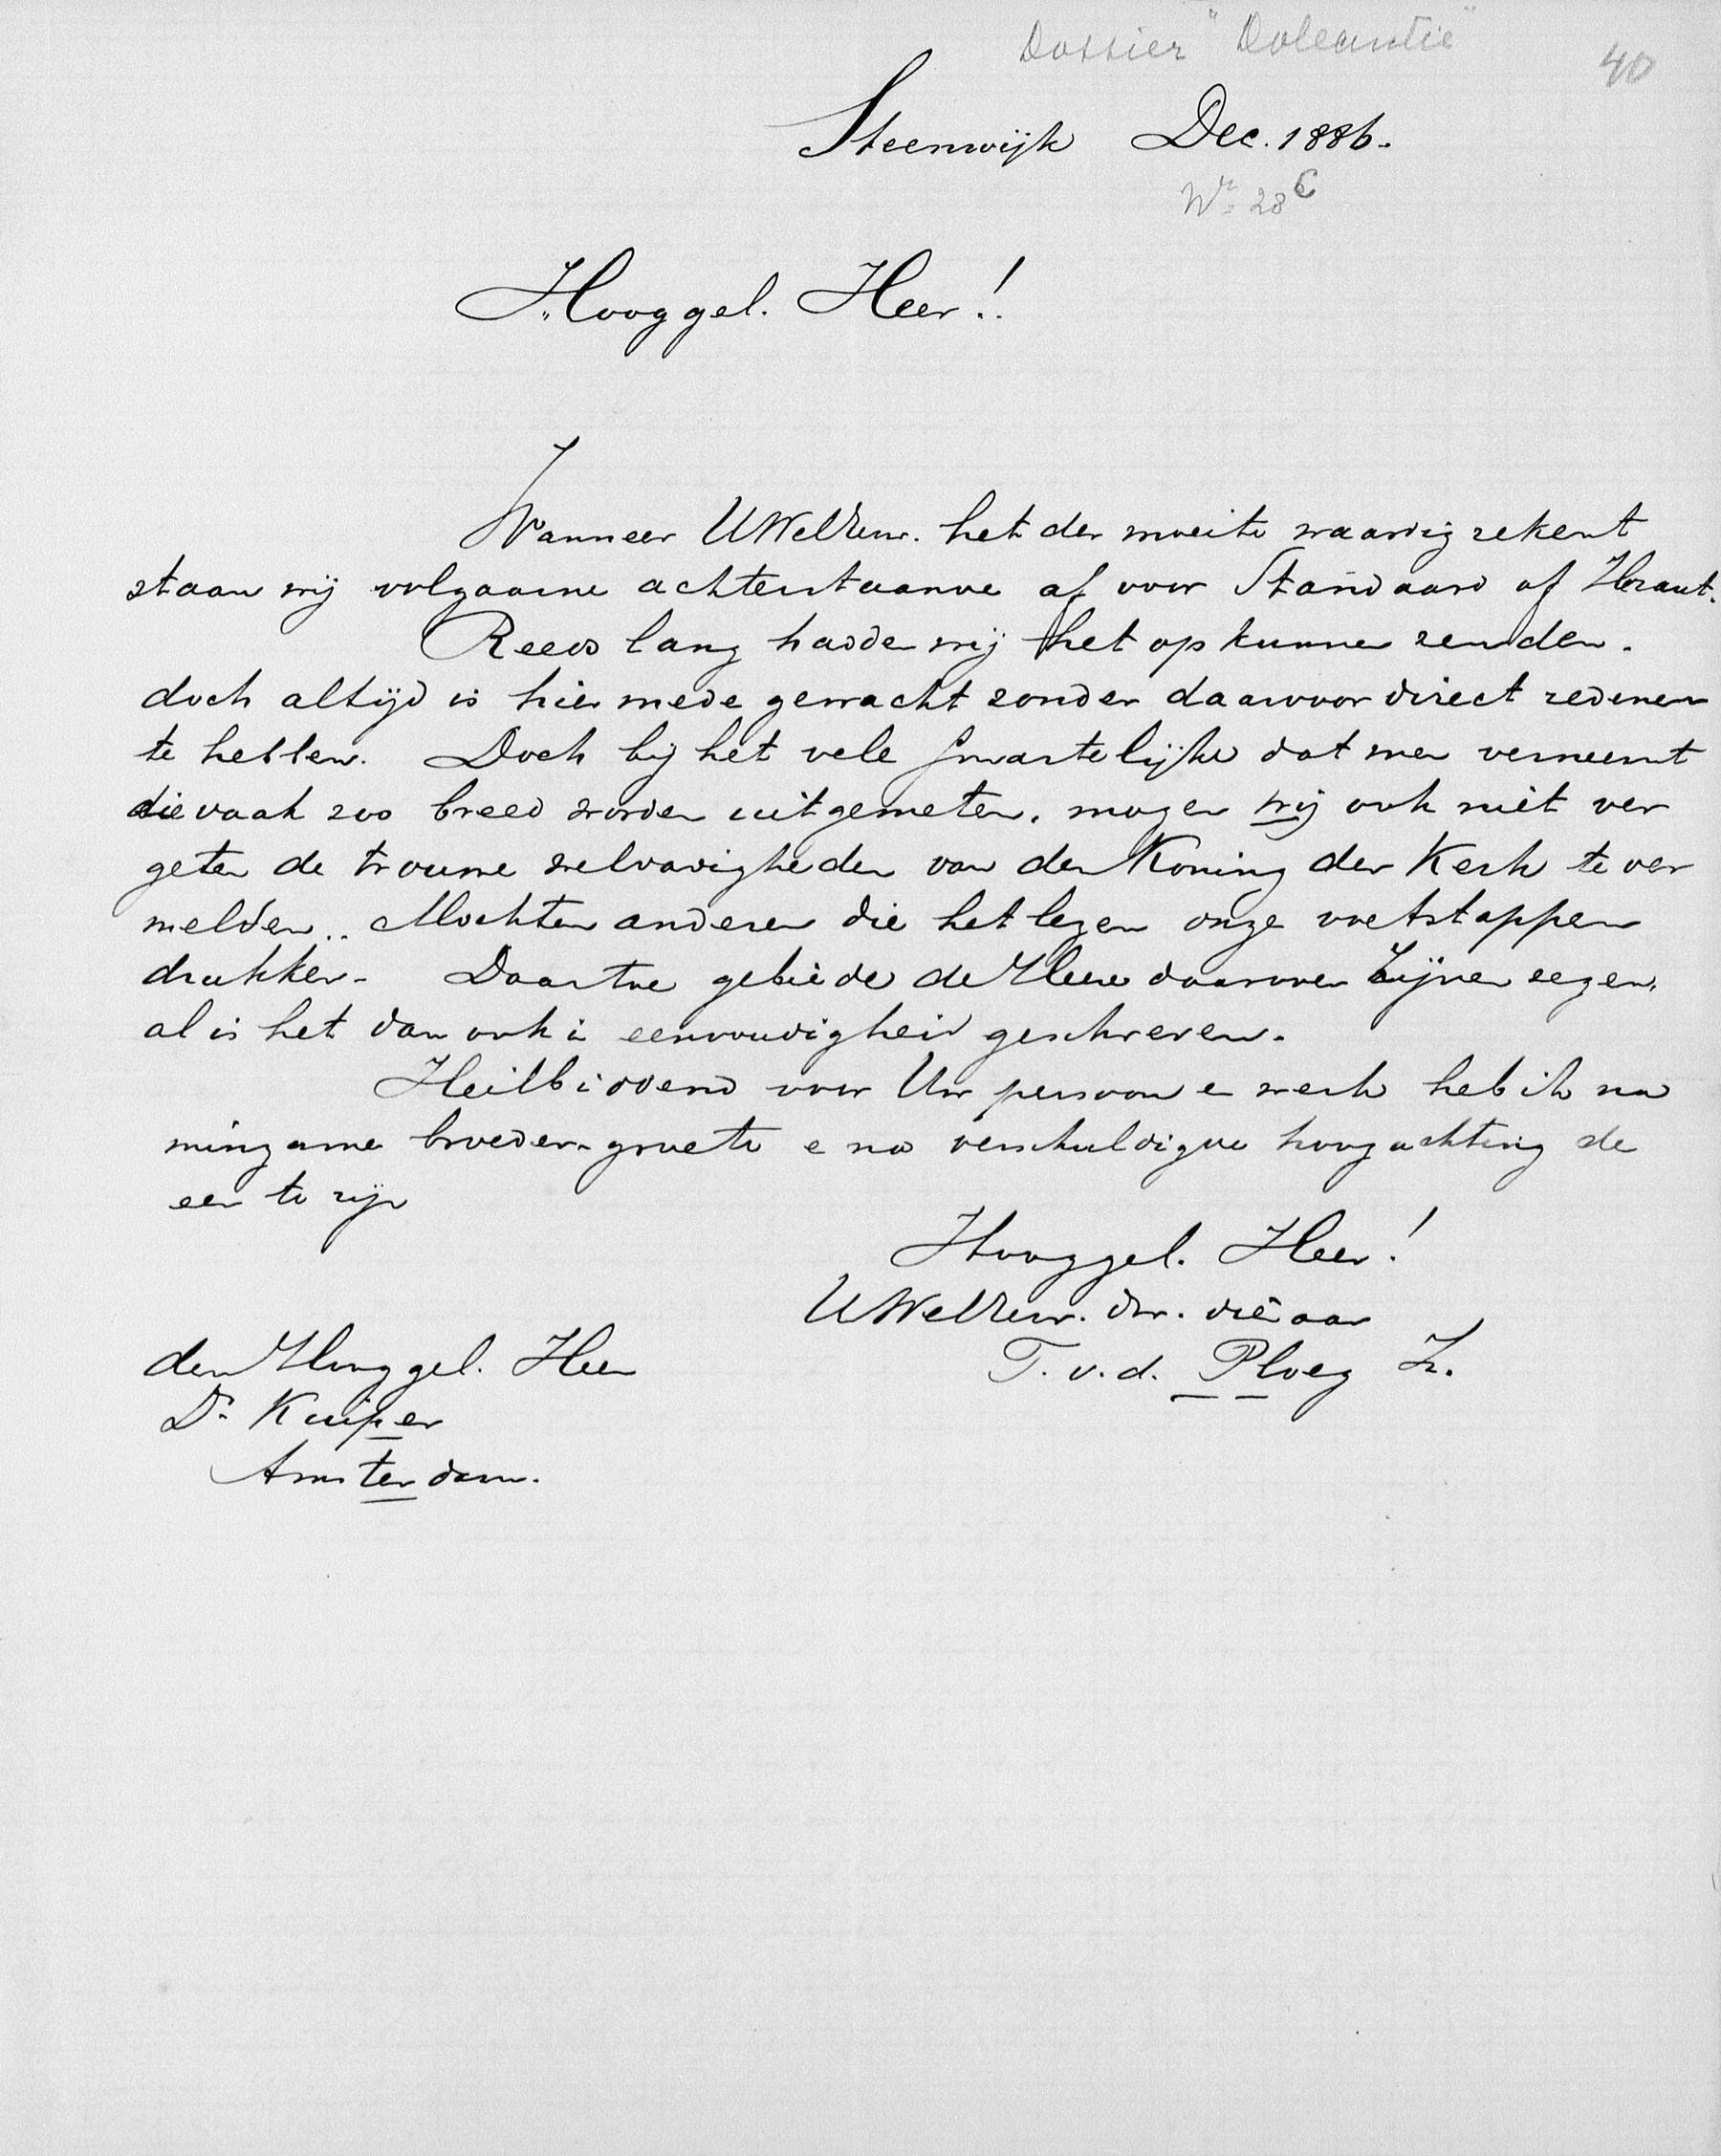 Dossier "Doleantie"
40
Steenwijk Dec. 1886.
Nr. 28 C
Hooggel. Heer!
Wanneer UWelEerw. het der moeite waardig rekent
staan wij volgaarne achterstaande af voor Standaard of Heraut.
Reeds lang hadden wij het op kunnen zenden.
doch altijd is hiermede gewacht zonder daarvoor direct redenen
te hebben. Doch bij het vele smartelijke dat men verneemt
die vaak zoo breed worden uitgemeten, mogen wij ook niet ver
geten de trouwe weldadigheden van den Koning der Kerk te ver
melden.. Mochten anderen die het lezen onze voetstappen
drukken. Daartoe gebiede de Heere daarover Zijnen zegen,
al is het dan ook in eenvoudigheid geschreven.
Heilbiddend voor Uw persoon en werk heb ik na
minzame broeder-groete en na verschuldigde hoogachting de
eer te zijn
Hooggel. Heer!
UWelEerw. dw. dienaar
T. v. d. Ploeg Hz.
den Hooggel. Heer
Dr. Kuiper
Amsterdam.